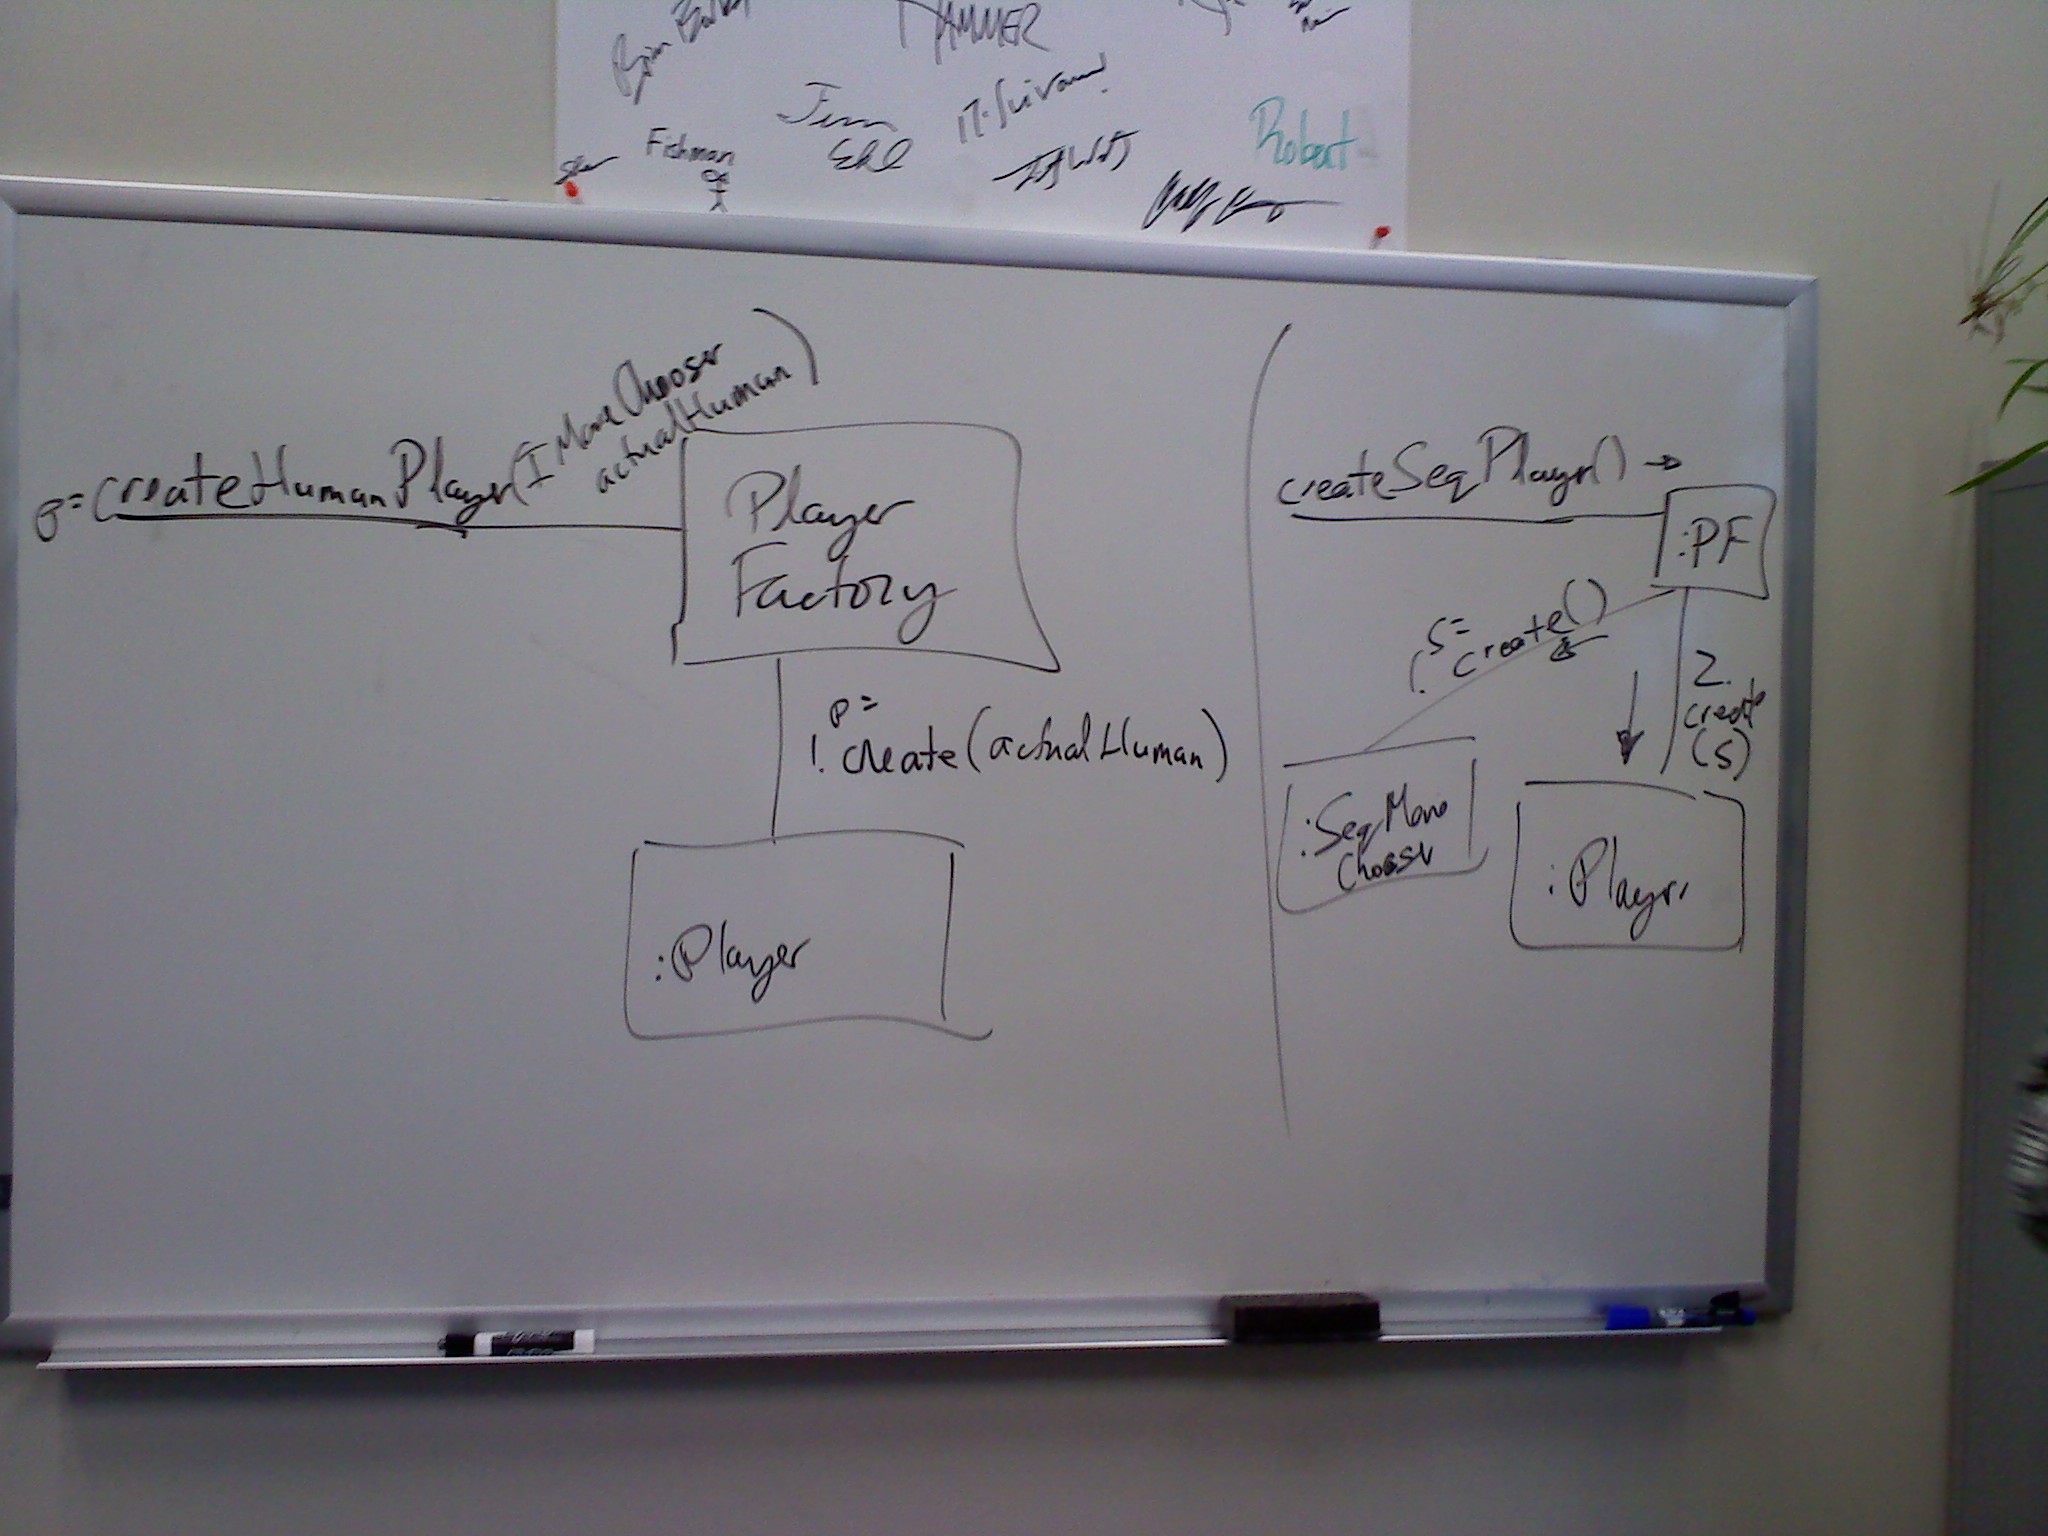 HAMMER
Fishman
Robert
p=createHumanPlayer(IMoveChooser
actualHuman)
Player
Factory
p=
1. create(actualHuman)
:Player
createSeqPlayer() →
:PF
s=
1. create()
2.
create
(s)
:SeqMove
Chooser
:Player